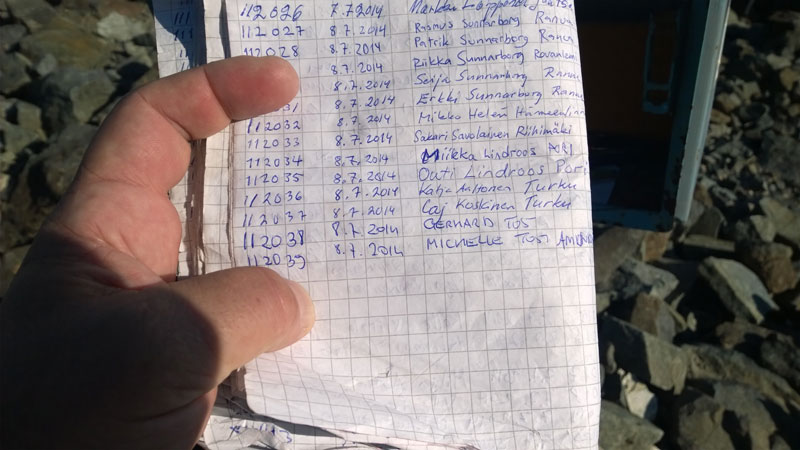 112026 7.7.2014
112027 8.7.2014 Rasmus Sunnarborg Ranua
112028 8.7.2014 Patrik Sunnarborg Ranua
8.7.2014 Riikka Sunnarborg Rovaniemi
8.7.2014 Seija Sunnarborg Ranua
31 8.7.2014 Erkki Sunnarborg Ranua
112032 8.7.2014 Mikko Helen Hämeenlinn
112033 8.7.2014 Sakari Savolainen Riihimäki
112034 8.7.2014 Miikka Lindroos PORI
112035 8.7.2014 Outi Lindroos Pori
112036 8.7.2014 Katja Aaltonen Turku
112037 8.7.2014 Caj Koskinen Turku
112038 8.7.2014 GERHARD TOST
112039 8.7.2014 MICHELLE TOST